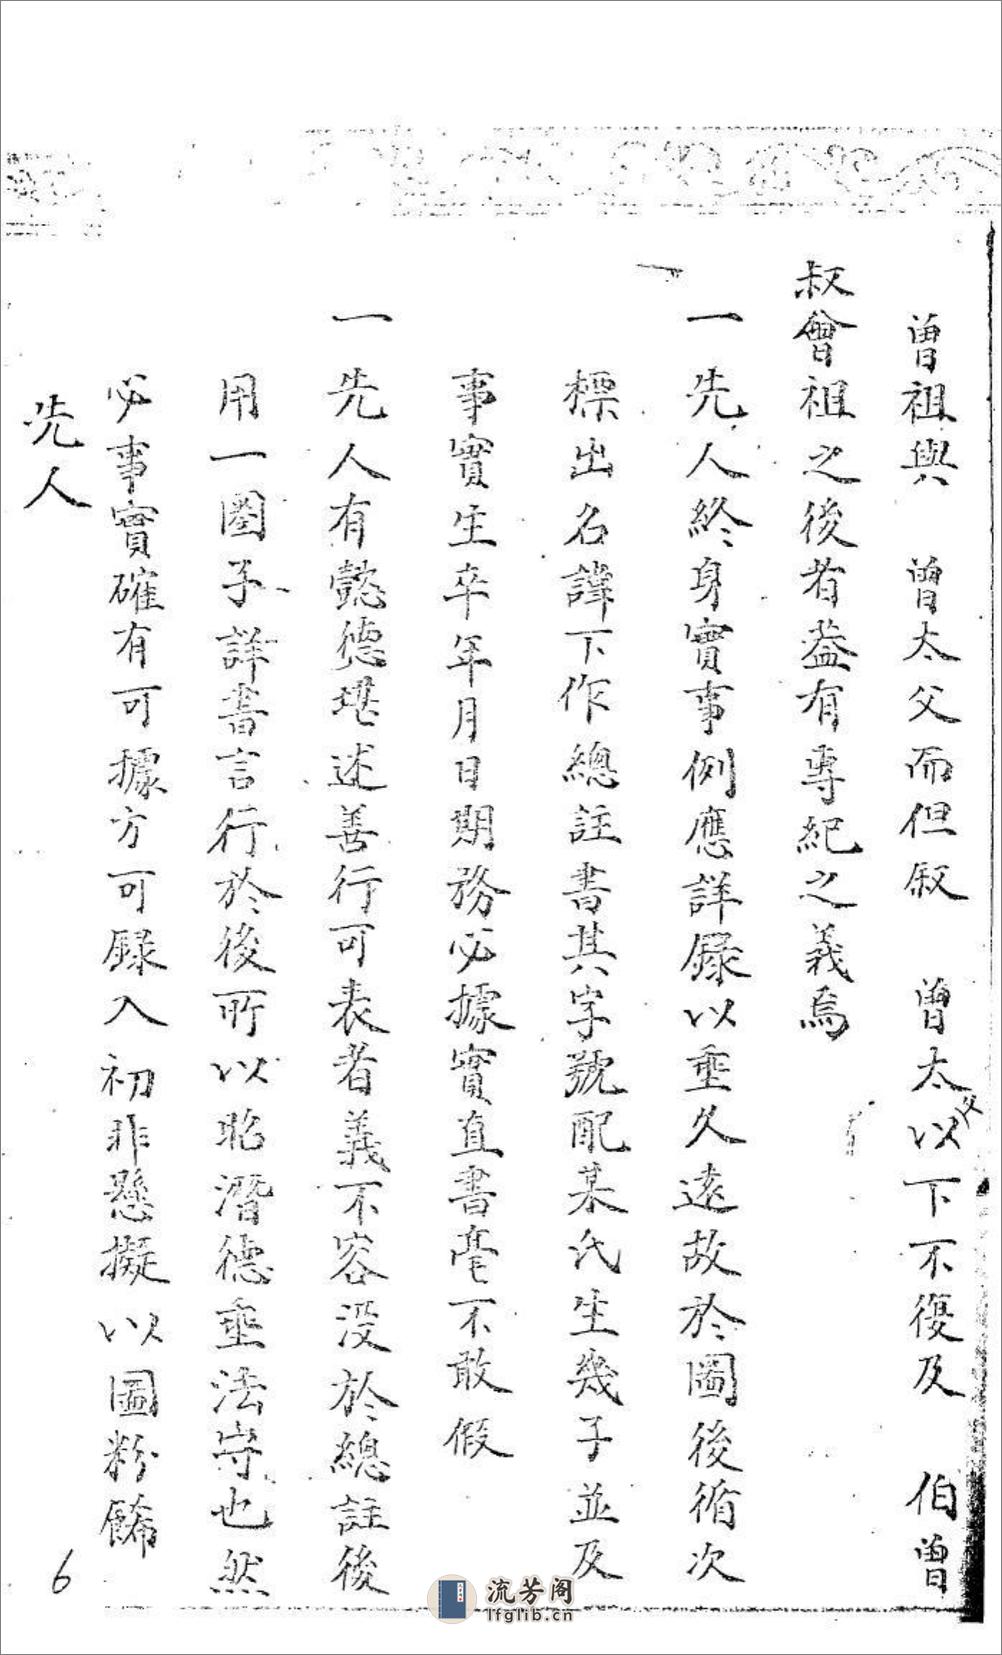 曾祖與　曾太父而但叙　曾太父以下不復及　伯曾
叔會祖之後者益有專紀之義焉
一先人終身實事例應詳錄以垂久遠故於圖後循次
標出名諱下作總註書其字號配某氏生幾子並及
事實生卒年月日期務必據實直書毫不敢假
一先人有懿德堪述善行可表者義不容没於總註後
用一圈子詳書言行於後所以昭潛德垂法守也然
必事實確有可據方可録入初非懸擬以圖粉餙
先人
6
流芳阁
lfglib.cn